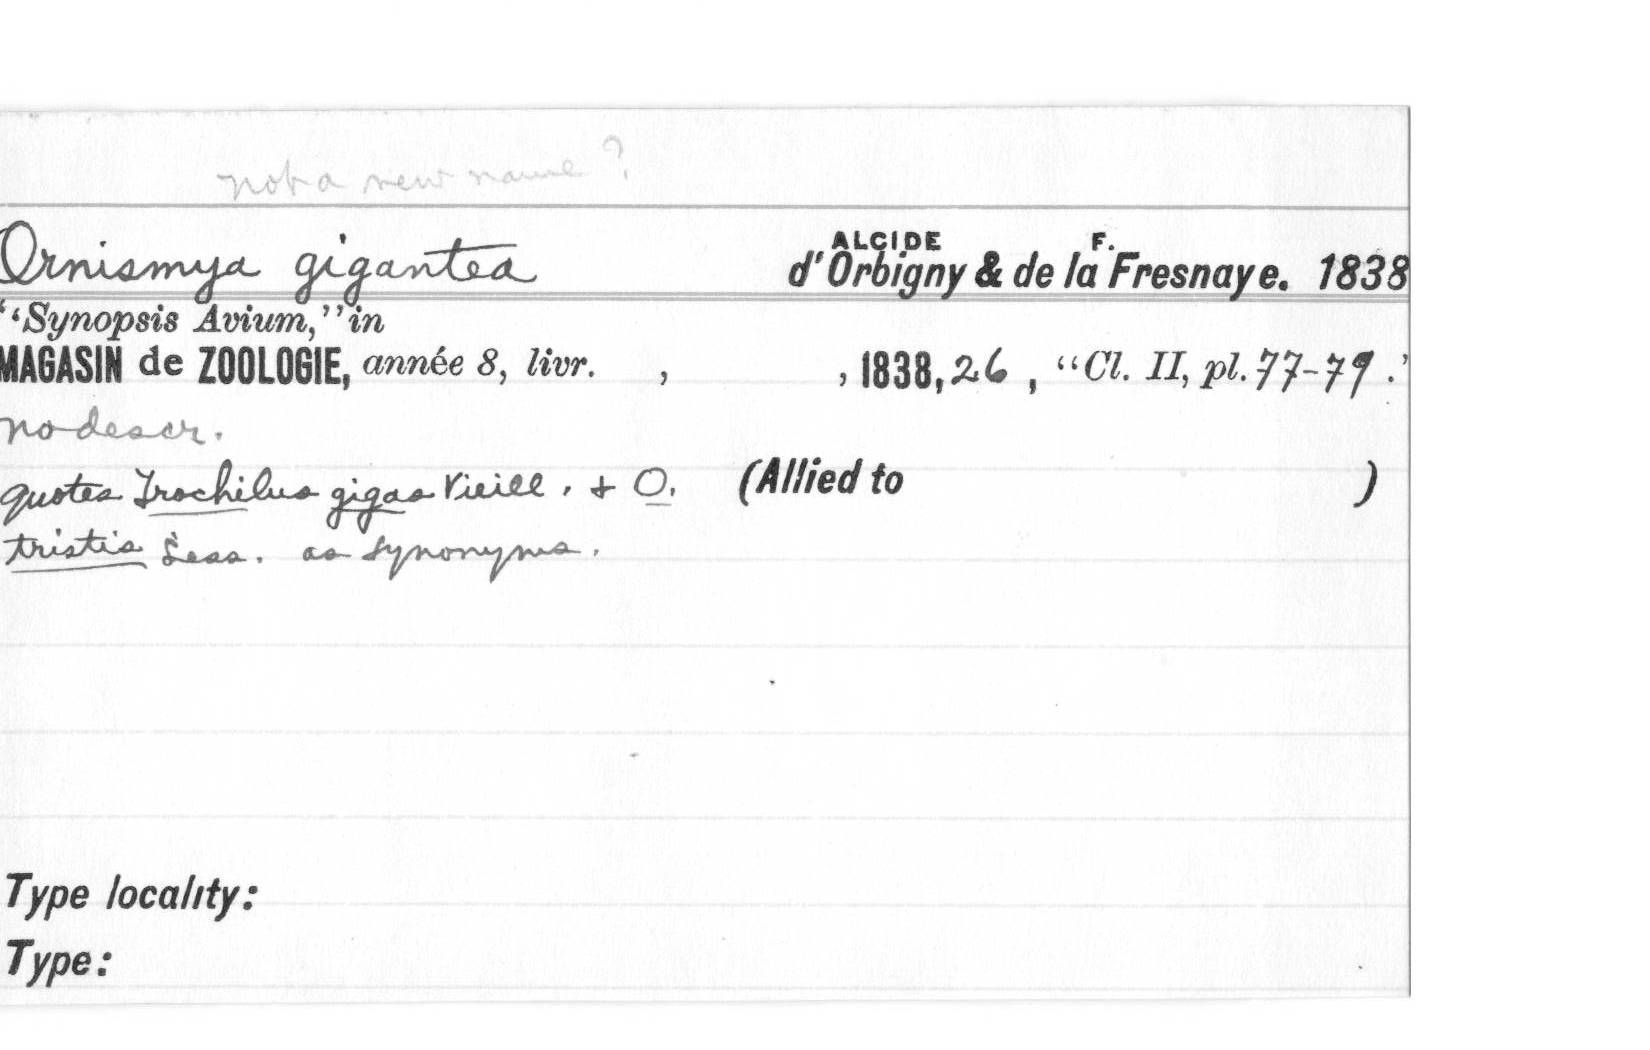 not a new name ?
ALCIDE F.
Ornismya gigantea d'Orbigny & de la Fresnaye. 1838
"Synopsis Avium," in
MAGASIN de ZOOLOGIE, année 8, livr. , , 1838, 26 , "Cl. II, pl. 77-79 ."
no descr.
quotes Trochilus gigas Vieill. & O. (Allied to )
tristis Less. as synonyms.
Type locality:
Type: